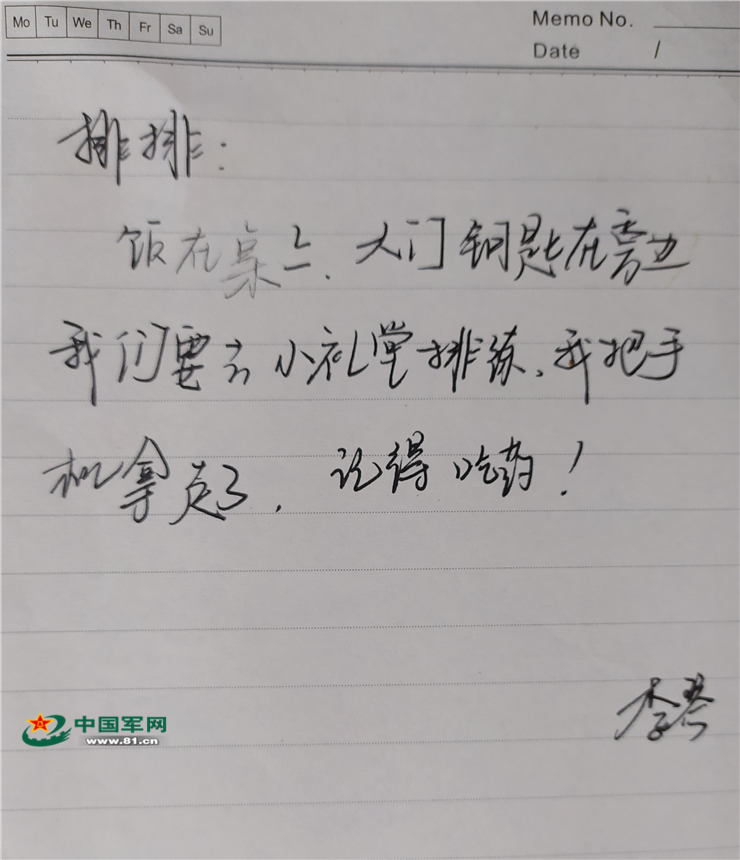 Mo Tu We Th Fr Sa Su
Memo No.
Date /
排排:
饭在桌上、大门钥匙在旁边
我们要去小礼堂排练、我把手
机拿走了, 记得吃药!
李
中国军网
www.81.cn